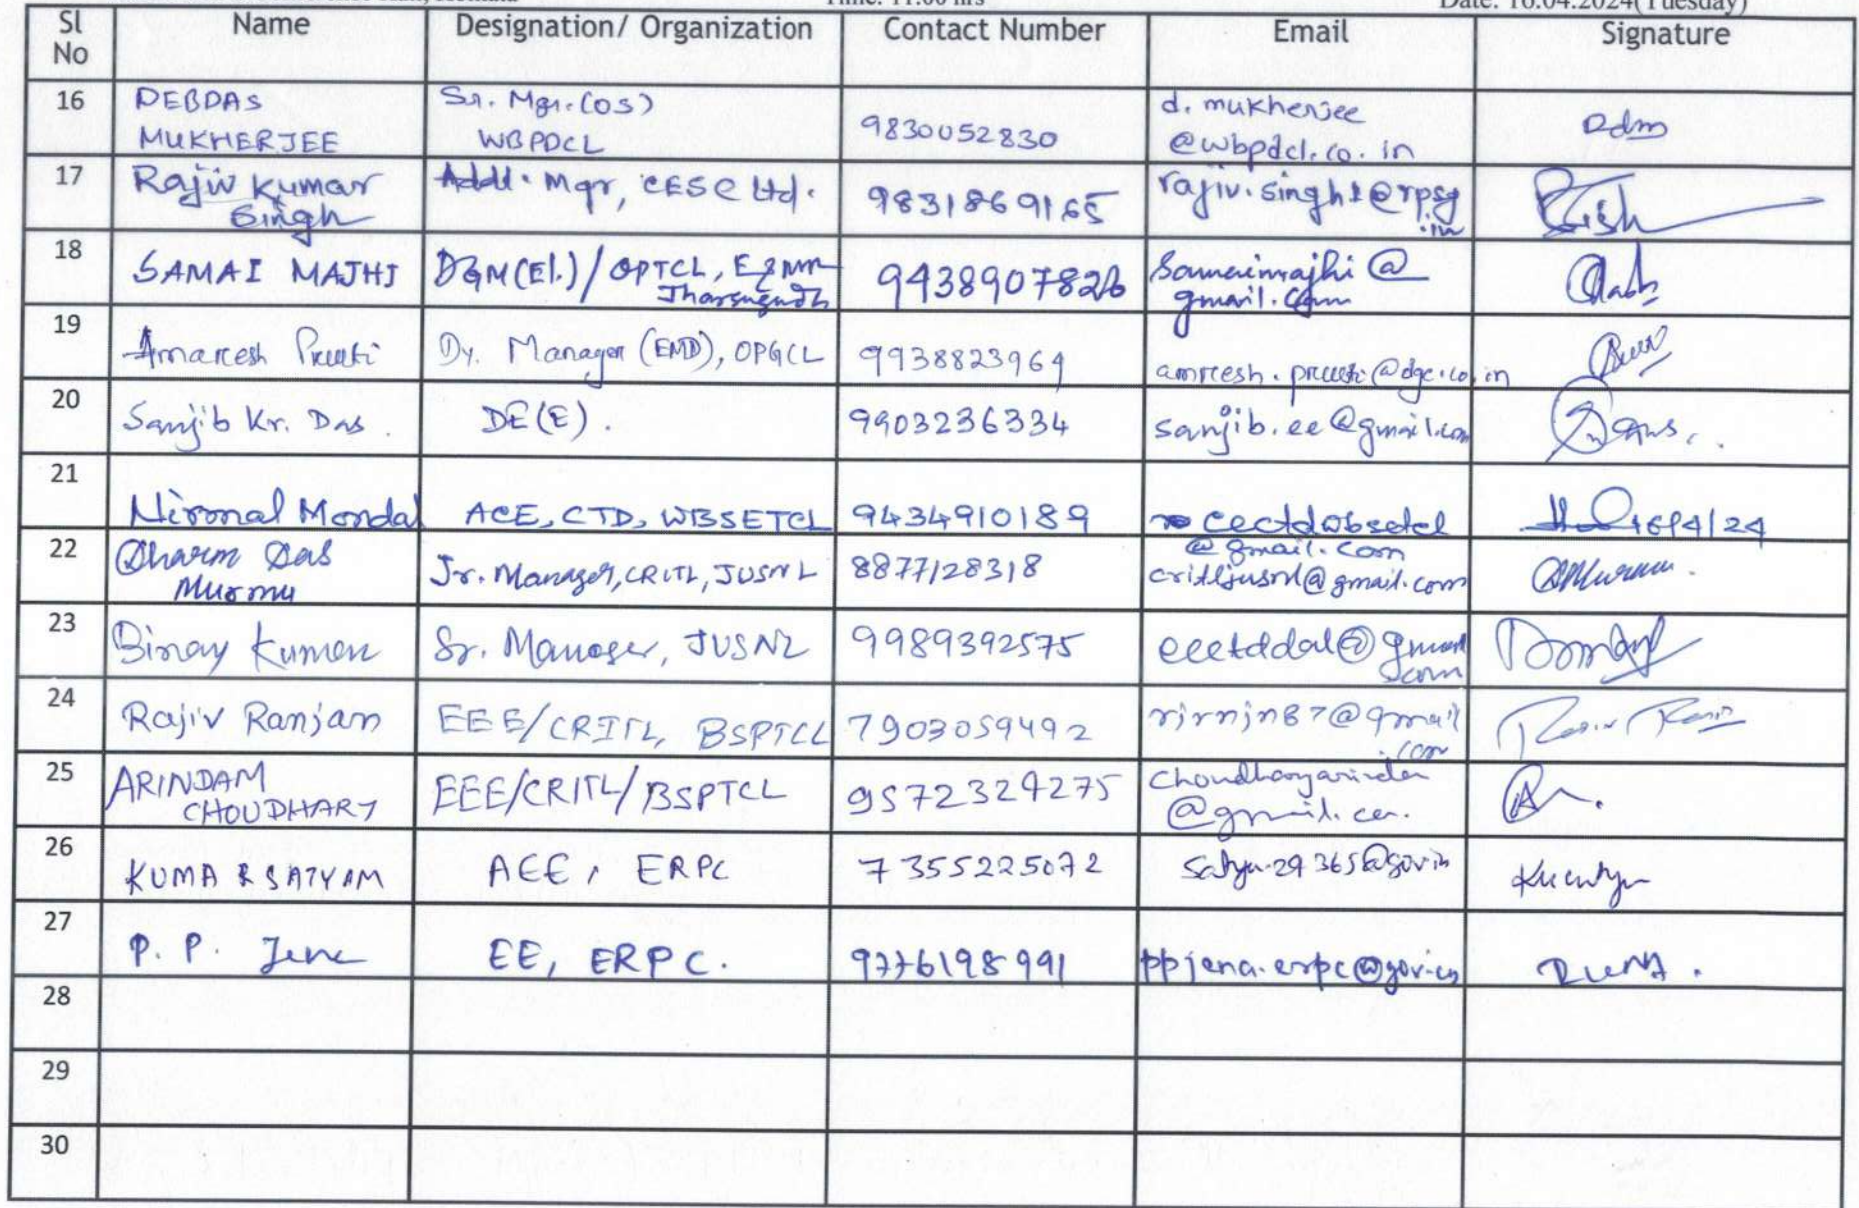 Time: 11:00 hrs
Date: 16.04.2024(Tuesday)
Sl No Name Designation/ Organization Contact Number Email Signature
16 DEBDAS MUKHERJEE Sr. Mgr. (OS) WBPDCL 9830052830 d.mukherjee @wbpdcl.co.in Ddm
17 Rajiv Kumar Singh Addl. Mgr, CESC Ltd. 9831869165 rajiv.singh1@rpsg .in
18 SAMAI MAJHI DGM(El.)/OPTCL, E&MR Jharsuguda 9438907826 Samaimajhi@ gmail.com
19 Amaresh Dy. Manager (EMD), OPGCL 9938823964
20 Sanjib Kr. Das. DE(E). 9903236334 sanjib.ee@gmail.com
21 Nirmal Mondal ACE, CTD, WBSETCL 9434910189 cectdwbsetcl @gmail.com 16/4/24
22 Dharm Das Murmu Jr. Manager, CRITL, JUSNL 8877128318 critljusnl@gmail.com
23 Binay Kumar Sr. Manager, JUSNL 9989392575
24 Rajiv Ranjan EEE/CRITL, BSPTCL 7903059492 rjrnjn87@gmail .com
25 ARINDAM CHOUDHARY EEE/CRITL/BSPTCL 9572324275
26 KUMAR SATYAM AEE, ERPC 7355225072
27 P. P. Jena EE, ERPC. 9776198991 ppjena.erpc@gov.in
28
29
30